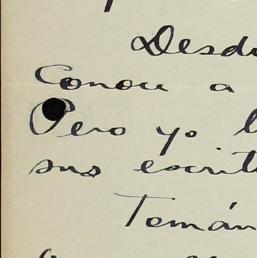 Desd
Conocí a
Pero yo l
sus escrit
Tomán